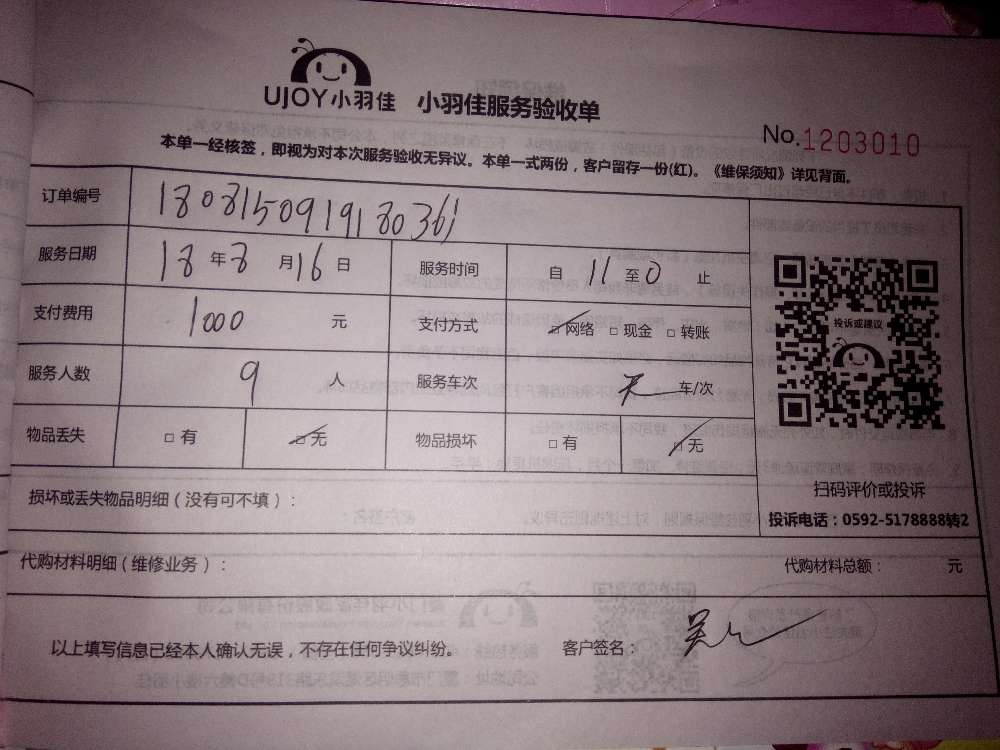 UJOY小羽佳 小羽佳服务验收单
No.1203010
本单一经核签，即视为对本次服务验收无异议。本单一式两份，客户留存一份(红)。《维保须知》详见背面。
订单编号 180815091918036
服务日期 18 年 8 月 16 日 服务时间 自 11 至 0 止
支付费用 1000 元 支付方式 □网络 □现金 □转账
投诉或建议
服务人数 9 人 服务车次 车/次
物品丢失 □有 □无 物品损坏 □有 □无
扫码评价或投诉
损坏或丢失物品明细（没有可不填）：
投诉电话：0592-5178888转2
代购材料明细（维修业务）： 代购材料总额： 元
以上填写信息已经本人确认无误，不存在任何争议纠纷。 客户签名：